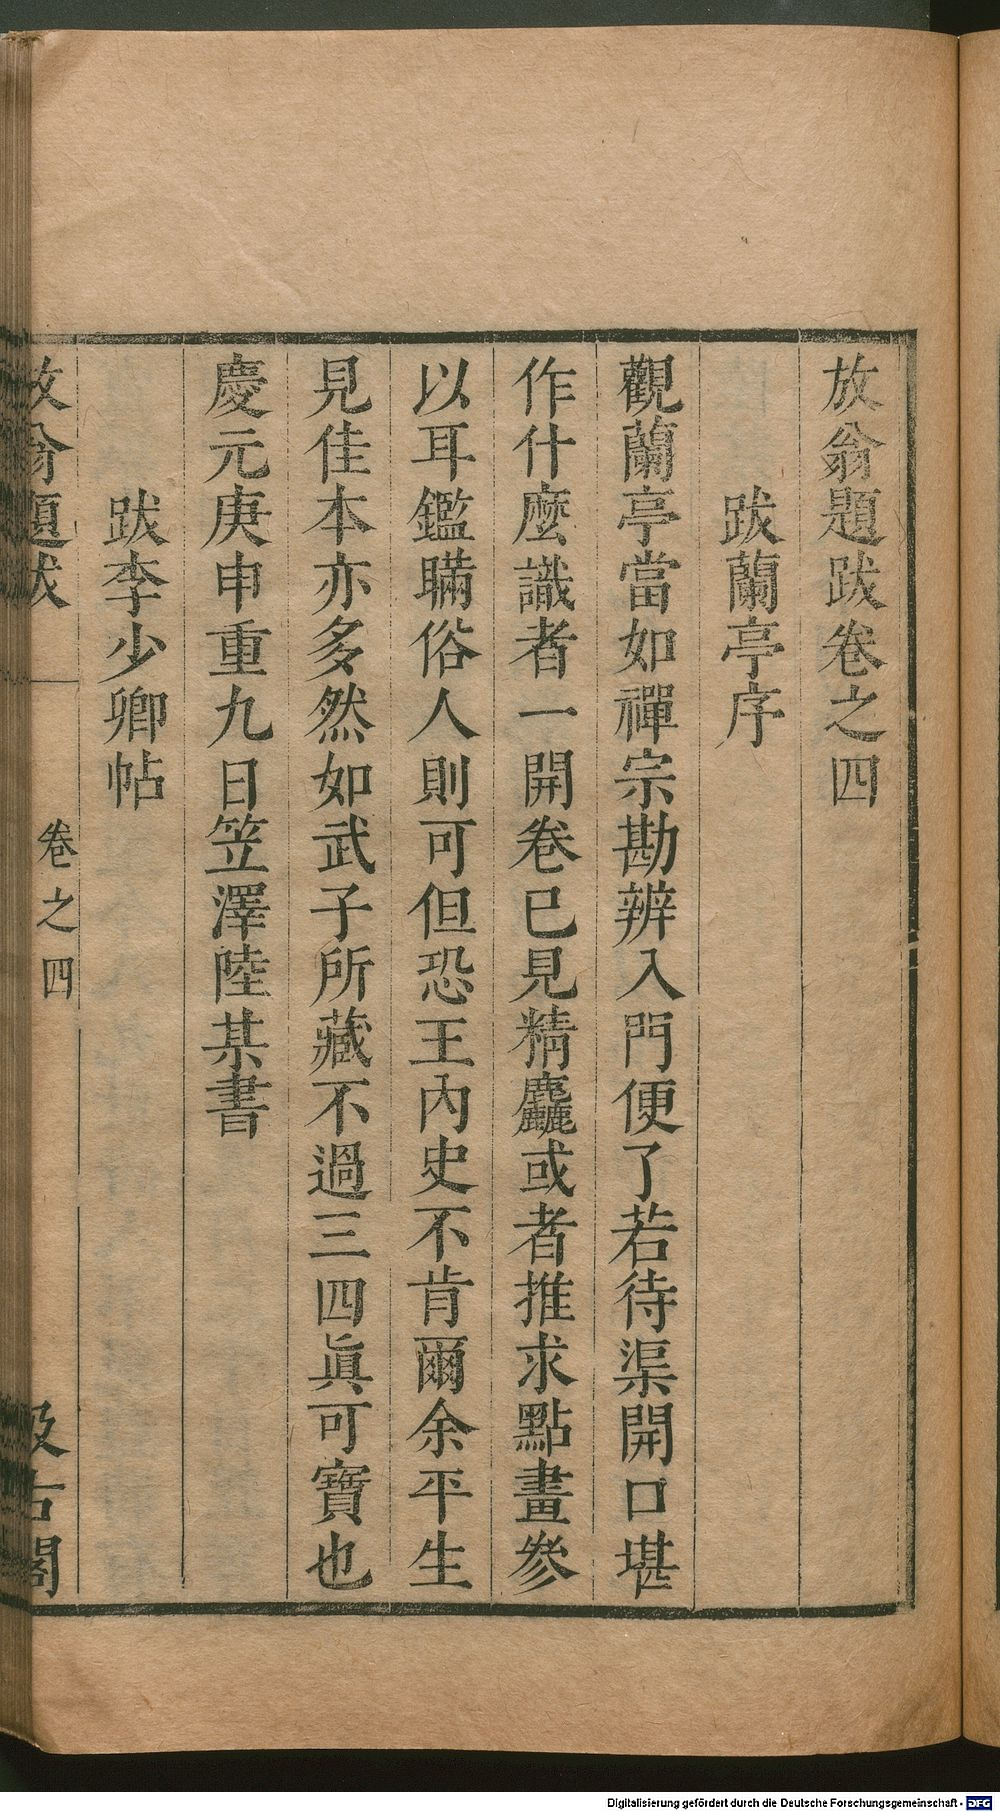 放翁題跋卷之四
跋蘭亭序
觀蘭亭當如禪宗勘辨入門便了若待渠開口堪
作什麼識者一開卷已見精麤或者推求點畫參
以耳鑑瞞俗人則可但恐王內史不肯爾余平生
見佳本亦多然如武子所藏不過三四眞可寶也
慶元庚申重九日笠澤陸某書
跋李少卿帖
放翁題跋 卷之四 汲古閣
Digitalisierung gefördert durch die Deutsche Forschungsgemeinschaft - DFG